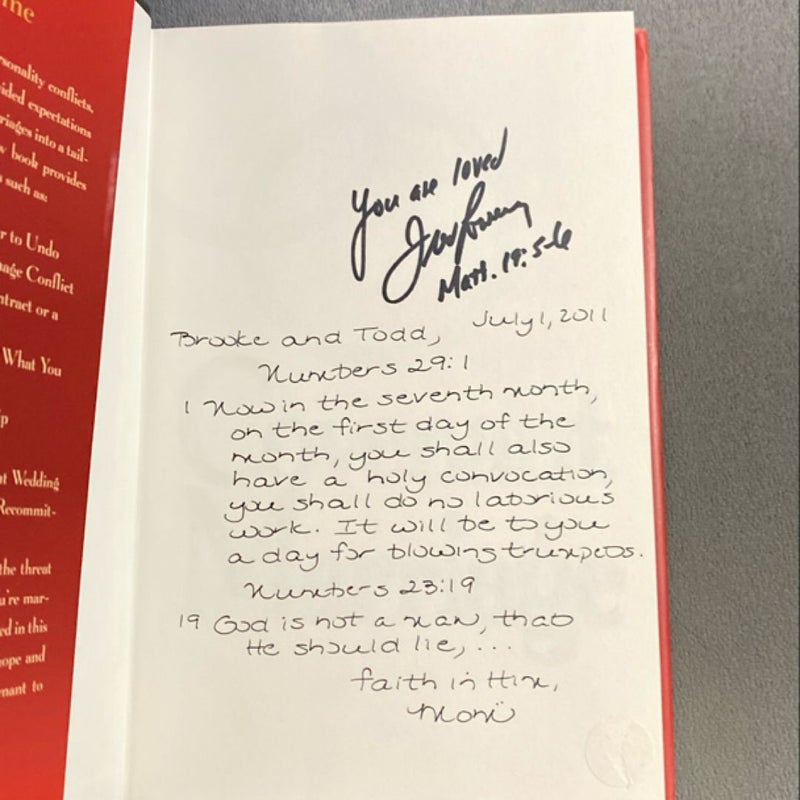 me
sonality conflicts,
ided expectations
riages into a tail-
w book provides
such as:
r to Undo
age Conflict
ntract or a
What You
p
t Wedding
Recommit-
the threat
u're mar-
ed in this
ope and
nant to
You are loved
Matt. 19:5-6
July 1, 2011
Brooke and Todd,
Numbers 29:1
1 Now in the seventh month,
on the first day of the
month, you shall also
have a holy convocation,
you shall do no laborious
work. It will be to you
a day for blowing trumpets.
Numbers 23:19
19 God is not a man, that
He should lie, ...
faith in Him,
Moni